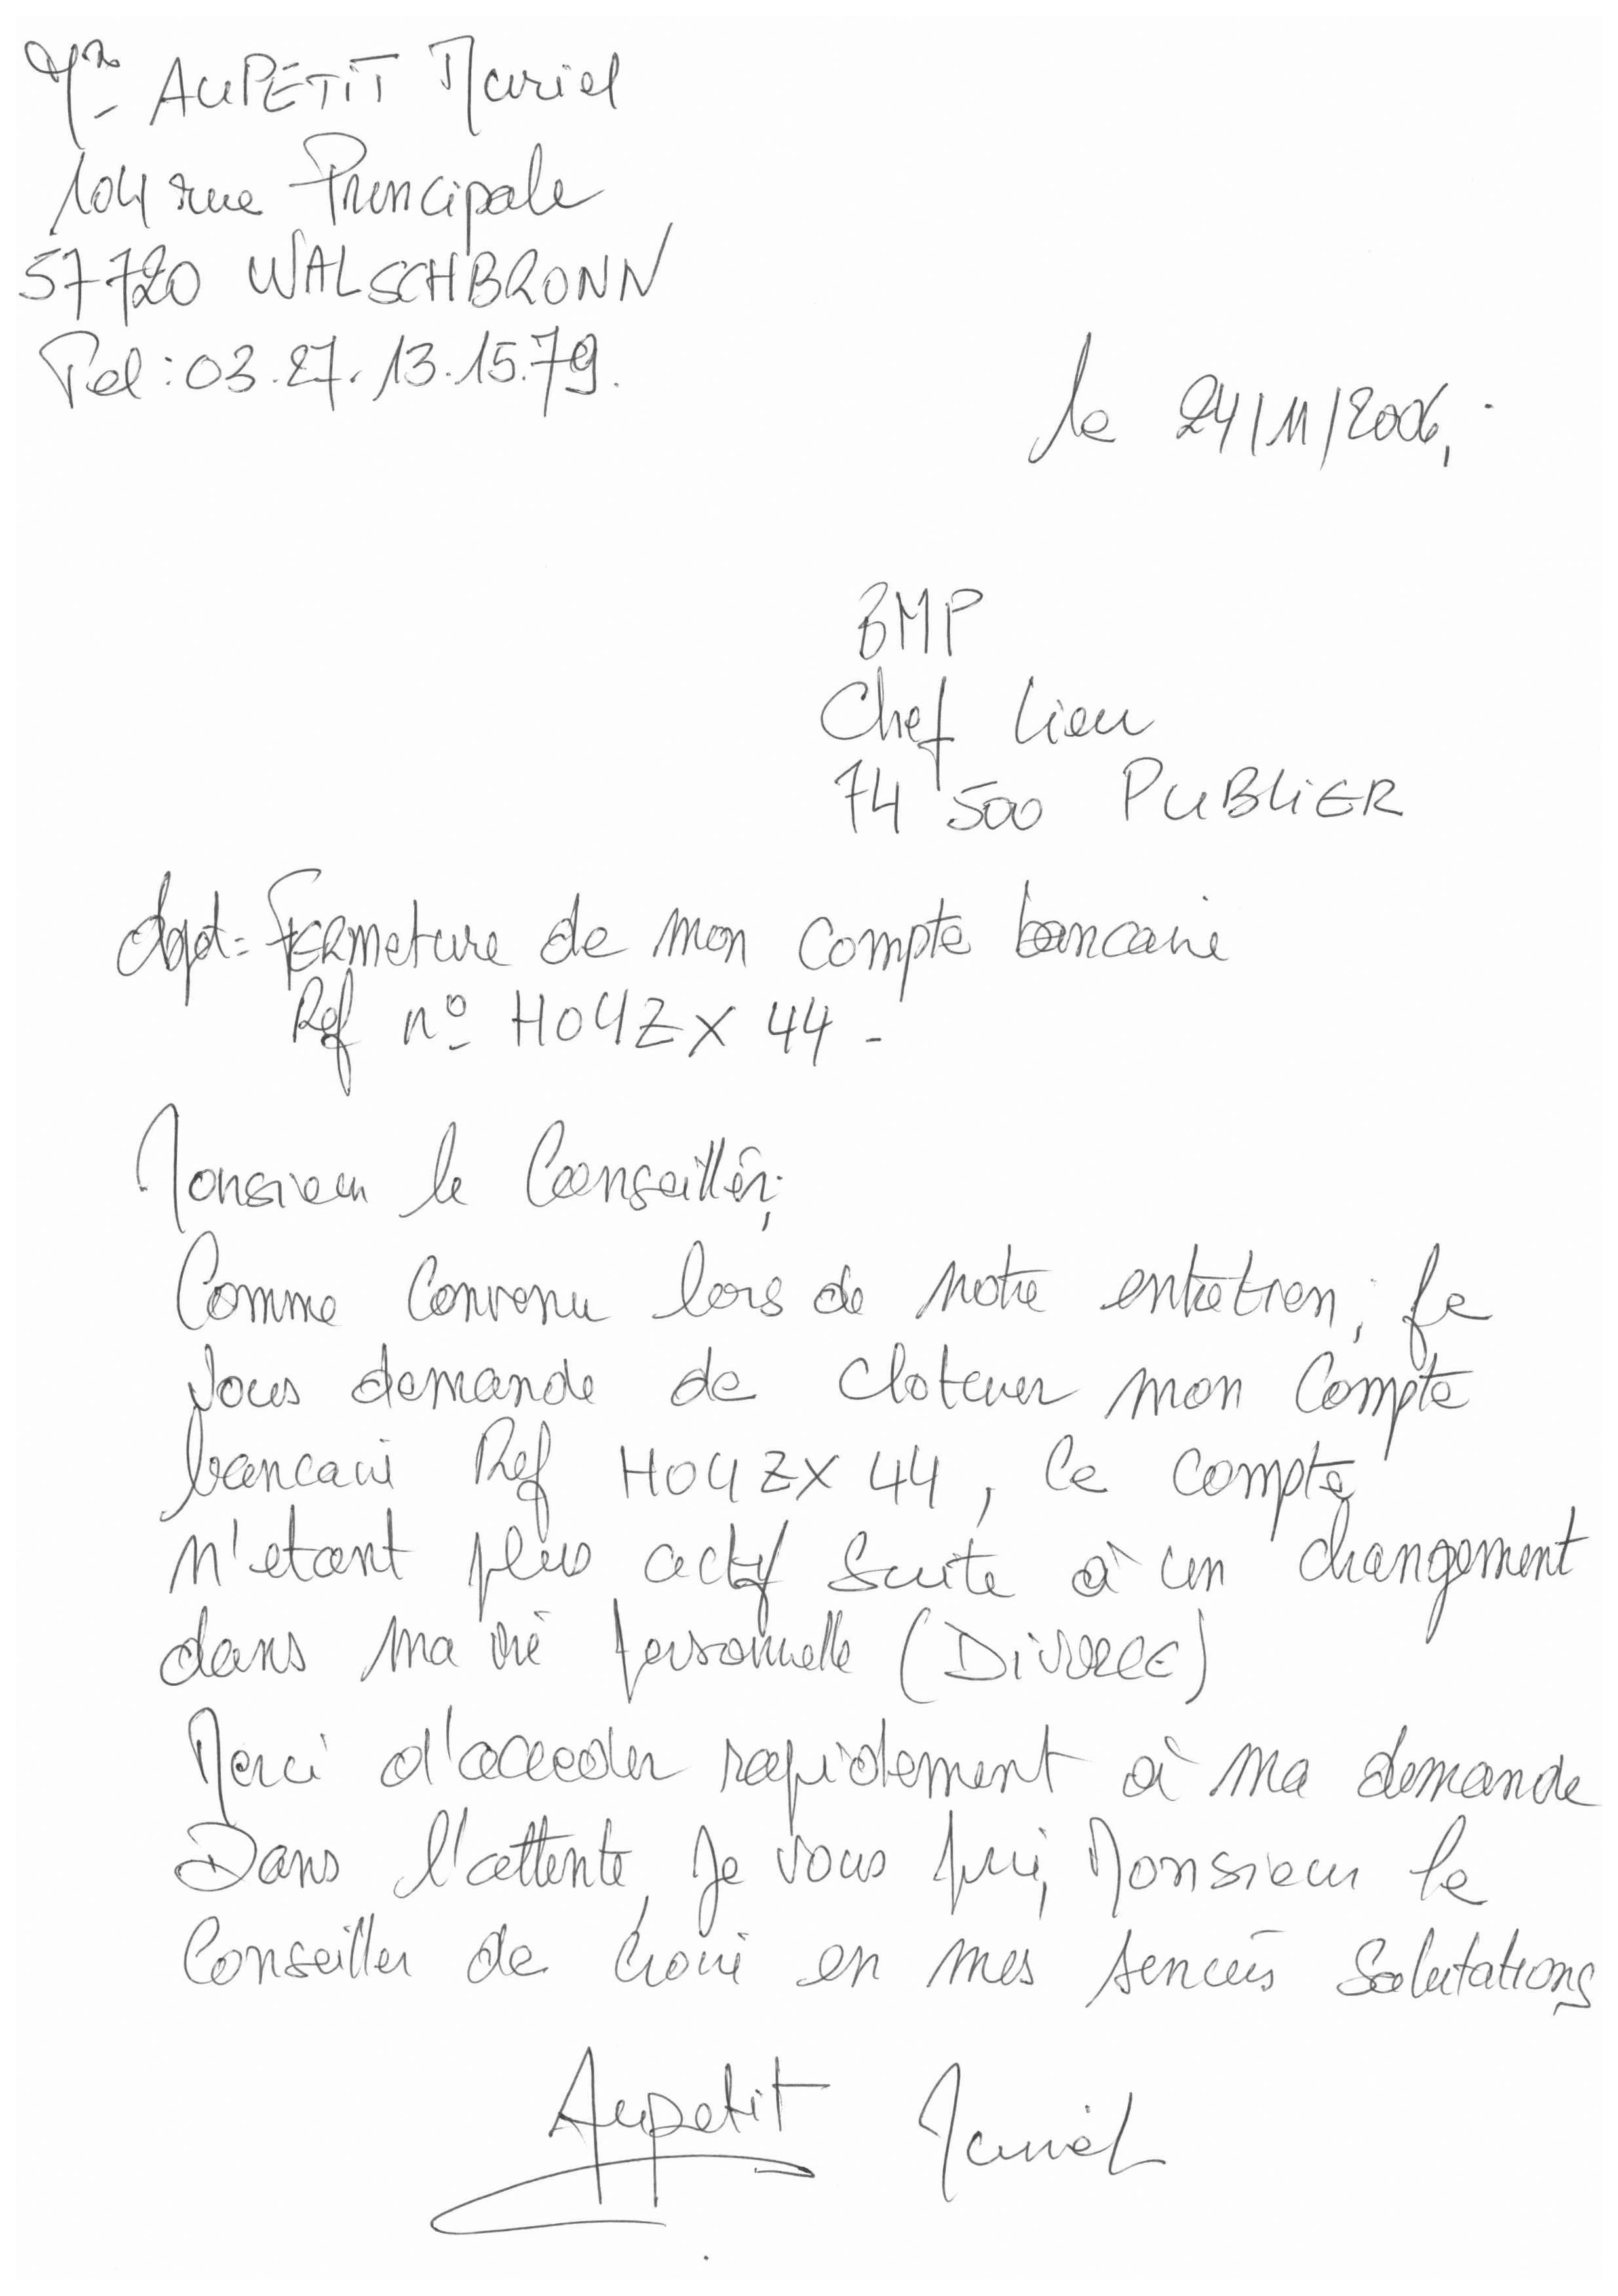 Mr AUPETIT Mariel
104 rue Principale
57720 WALSCHBRONN
Tel : 03.27.13.15.79.
le 24/11/2006,
BMP
Chef Lieu
74 500 PUBLIER
Objet = FERmeture de mon compte bancaire
Ref n° HOYZX 44 -
Monsieur le Conseiller,
Comme Convenu lors de notre entretien, je
vous demande de cloturer mon Compte
bancaire Ref HOYZX 44, ce compte
n'etant plus actif suite à un changement
dans ma vie personnelle (DivoRCE)
Merci d'acceder rapidement à ma demande
Dans l'attente, je vous prie, Monsieur le
Conseiller de croire en mes sinceres Salutations
Aupetit Mariel